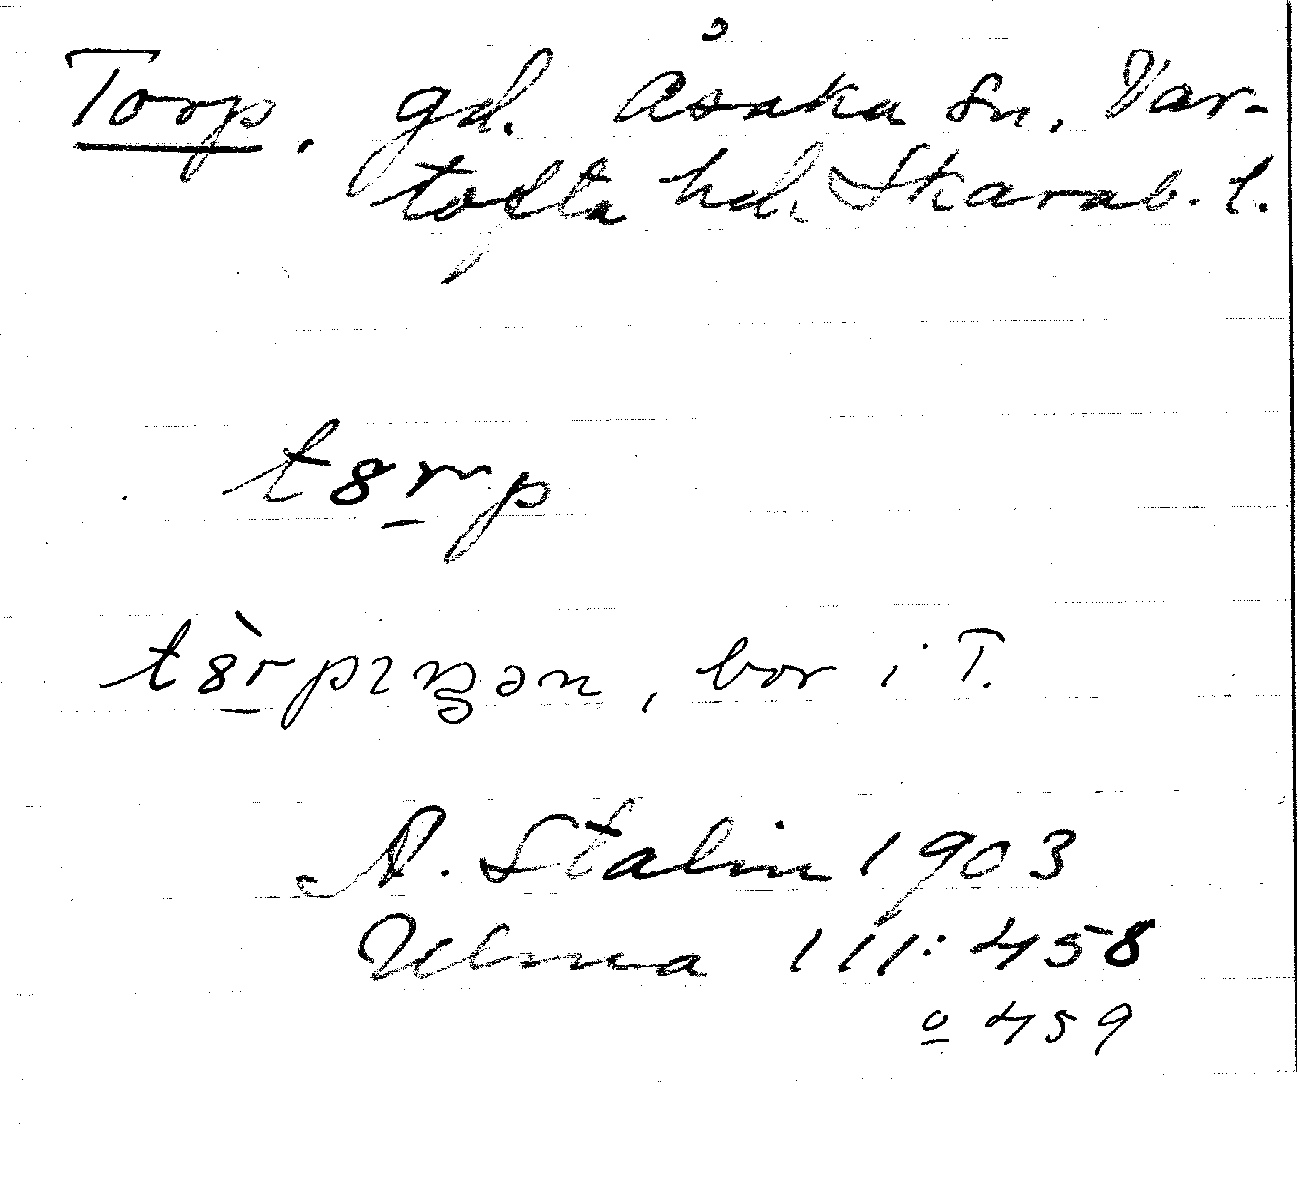 Torp. gd. Åsaka sn, Var-
tofta hd. Skarab. l.
t8r̲p
t8̲̀rpıŋən, bor i T.
A. Stalin 1903
Ulma 111:458
o̲ 459